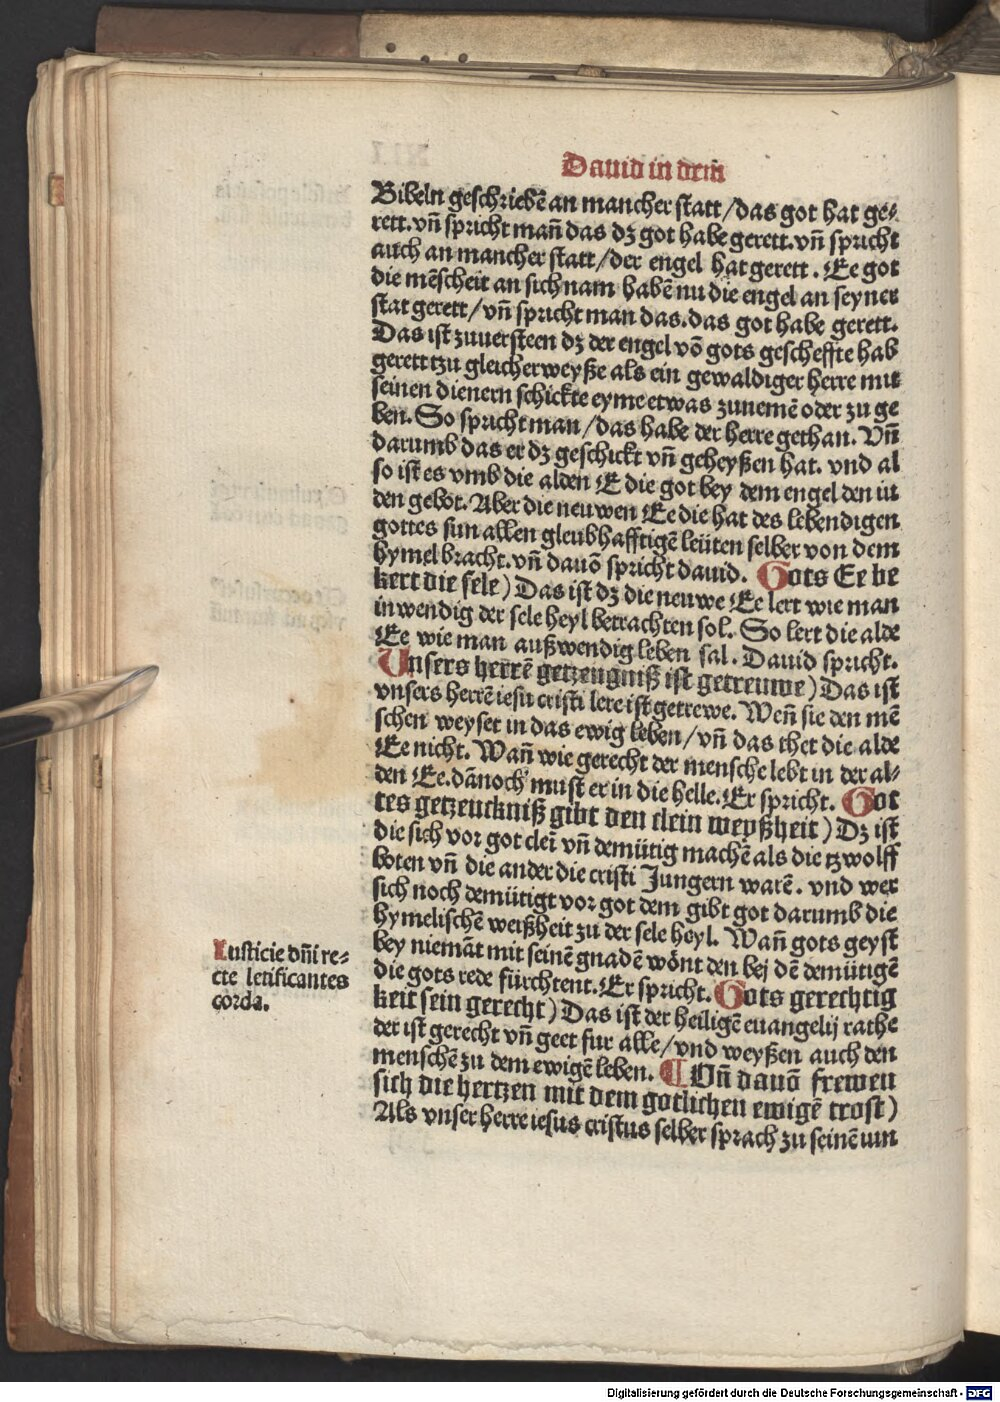 Dauid in dem̄
Bibeln geschriebē an mancher statt/das got hat ge⸗
rett. vñ spricht mañ das dz got habe gerett. vñ spricht
auch an mancher statt/der engel hat gerett. Ee got
die mēscheit an sich nam habē nu die engel an seyner
stat gerett/vñ spricht man das. das got habe gerett.
Das ist zuuersteen dz der engel vō gots gescheffte hab
gerett tzu gleicher weyße als ein gewaldiger herre mit
seinen dienern schickte eyme etwas zunemē oder zu ge
ben. So spricht man/das habe der herre gethan. Vñ
darumb das er dz geschickt vñ geheyßen hat. vnd al
so ist es vmb die alden E die got bey dem engel den iu
den gebot. Aber die neuwen Ee die hat des lebendigen
gottes sun allen gleubhafftigē leüten selber von dem
hymel bracht. vñ dauō spricht dauid. Gots Ee be
kert die sele) Das ist dz die neuwe Ee lert wie man
inwendig der sele heyl betrachten sol. So lert die alde
Ee wie man außwendig leben sal. Dauid spricht.
Unsers herrē getzeugniß ist getreuwe) Das ist
vnsers herrē iesu cristi lere ist getrewe. Weñ sie den mē
schen weyset in das ewig leben/vñ das thet die alde
Ee nicht. Wañ wie gerecht der mensche lebt in der al⸗
den Ee. dānoch must er in die helle. Er spricht. Got
tes getzeuckniß gibt den clein weyßheit) Dz ist
die sich vor got clei vñ demütig machē als die tzwolff
boten vñ die ander die cristi Jungern warē. vnd wer
sich noch demütigt vor got dem gibt got darumb die
hymelischē weißheit zu der sele heyl. Wañ gots geyst
bey niemāt mit seinē gnadē wönt den bej dē demütigē
die gots rede fürchtent. Er spricht. Gots gerechtig
keit sein gerecht) Das ist der heiligē euangelij rathe
der ist gerecht vñ geet fur alle/vnd weyßen auch den
menschē zu dem ewigē leben. ¶ Vñ dauō frewen
sich die hertzen mit dem gotlichen ewigē trost)
Als vnser herre iesus cristus selber sprach zu seinē iun
Iusticie dñi re⸗
cte letificantes
corda.
Digitalisierung gefördert durch die Deutsche Forschungsgemeinschaft - DFG